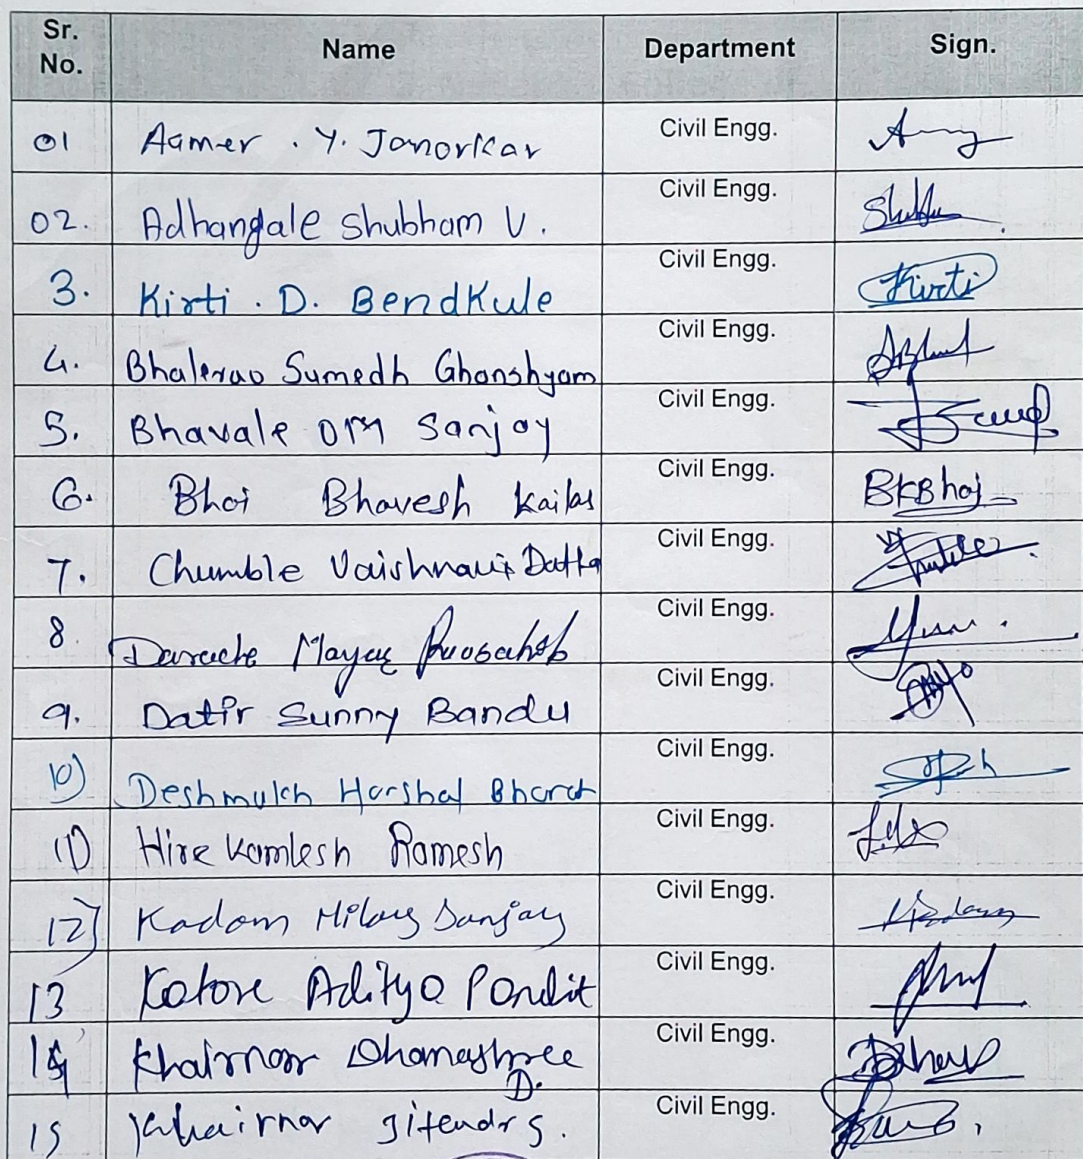 Sr. No. Name Department Sign.
01 Aamer . Y. Janorkar Civil Engg.
02. Adhangale Shubham V. Civil Engg.
3. Kirti . D. Bendkule Civil Engg. Kirti
4. Bhalerao Sumedh Ghanshyam Civil Engg.
5. Bhavale Om Sanjay Civil Engg.
6. Bhoi Bhavesh Kailas Civil Engg. BKBhoi
7. Chumble Vaishnavi Datta Civil Engg.
8 Darade Civil Engg.
9. Datir Sunny Bandu Civil Engg.
10) Deshmukh Harshal Bharat Civil Engg.
11) Hire Kamlesh Ramesh Civil Engg.
12) Kadam Sanjay Civil Engg.
13 Katore Aditya Pandit Civil Engg.
14 Khairnar Dhaneshree D. Civil Engg.
15 Khairnar Jitendr S. Civil Engg.